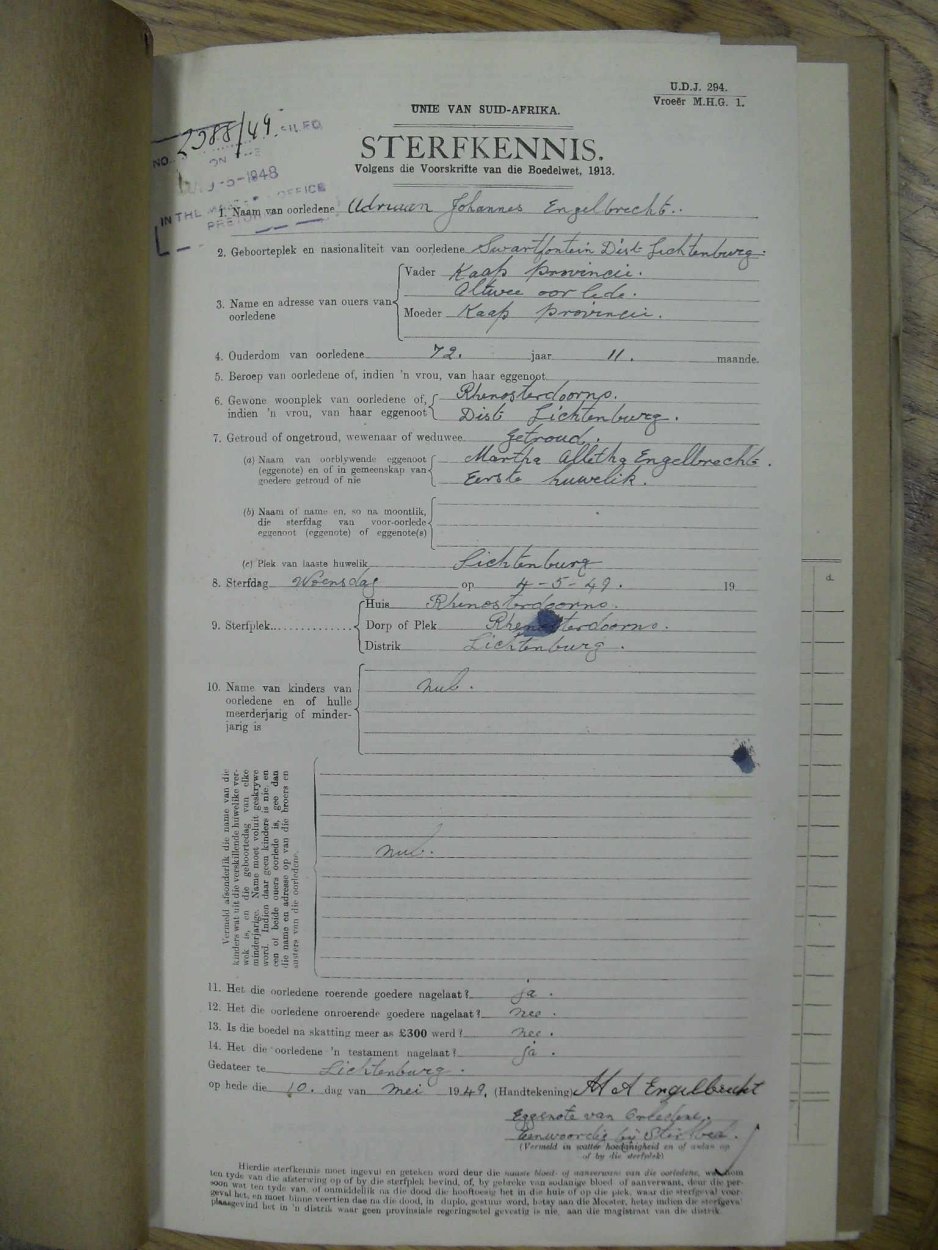 U.D.J. 294.
Vroeër M.H.G. 1.
UNIE VAN SUID-AFRIKA.
STERFKENNIS.
Volgens die Voorskrifte van die Boedelwet, 1913.
NO. 2988/49. FILED
ON THE
-5-1948
IN THE OFFICE
1. Naam van oorledene Adriaan Johannes Engelbrecht.
2. Geboorteplek en nasionaliteit van oorledene Swartfontein Dist. Lichtenburg.
3. Name en adresse van ouers van oorledene
Vader Kaap Provincie.
Altwee oorlede.
Moeder Kaap Provincie.
4. Ouderdom van oorledene 72. jaar 11. maande.
5. Beroep van oorledene of, indien 'n vrou, van haar eggenoot
6. Gewone woonplek van oorledene of, indien 'n vrou, van haar eggenoot
Rhenosterdoorns.
Dist Lichtenburg.
7. Getroud of ongetroud, wewenaar of weduwee Getroud.
(a) Naam van oorblywende eggenoot (eggenote) en of in gemeenskap van goedere getroud of nie
Martha Alletha Engelbrecht.
Eerste huwelik.
(b) Naam of name en, so na moontlik, die sterfdag van voor-oorlede eggenoot (eggenote) of eggenote(s)
(c) Plek van laaste huwelik Lichtenburg
8. Sterfdag Woensdag op 4-5-49. 19
9. Sterfplek
Huis Rhenosterdoorns.
Dorp of Plek Rhenosterdoorns.
Distrik Lichtenburg.
10. Name van kinders van oorledene en of hulle meerderjarig of minderjarig is
nul.
Vermeld afsonderlik die name van die
kinders wat uit die verskillende huwelike ver-
wek is, en die geboortedag van elke
minderjarige. Name moet voluit geskrywe
word. Indien daar geen kinders is nie, en
een of beide ouers oorlede is, gee dan
die name en adresse op van die broers en
susters van die oorledene.
nul.
11. Het die oorledene roerende goedere nagelaat? ja.
12. Het die oorledene onroerende goedere nagelaat? nee.
13. Is die boedel na skatting meer as £300 werd? nee.
14. Het die oorledene 'n testament nagelaat? ja.
Gedateer te Lichtenburg.
op hede die 10. dag van Mei 1949. (Handtekening) M A Engelbrecht
Eggenote van Orledene.
Teenwoordig bij Sterfbed.
(Vermeld in watter hoedanigheid en of aldan op
of by die sterfplek)
Hierdie sterfkennis moet ingevul en geteken word deur die naaste bloed- of aanverwant van die oorledene, wat
ten tyde van die afsterwing op of by die sterfplek bevind, of, by gebreke van sodanige bloed- of aanverwant, deur die per-
soon wat ten tyde van, of onmiddelik na die dood die hooftoesig het in die huis of op die plek, waar die sterfgeval voor-
geval het, en moet binne veertien dae na die dood, in duplo, gestuur word,
plaasgevind het in 'n distrik waar geen provinsiale regeringsetel gevestig is nie, aan die magistraat van die distrik.